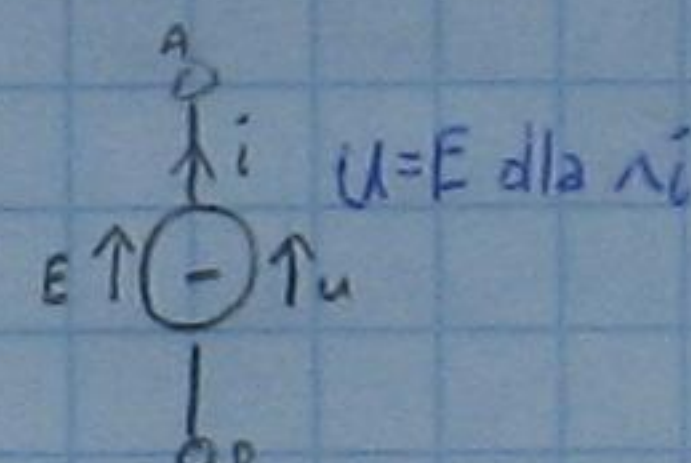 A
i
U=E dla ∧i
E
u